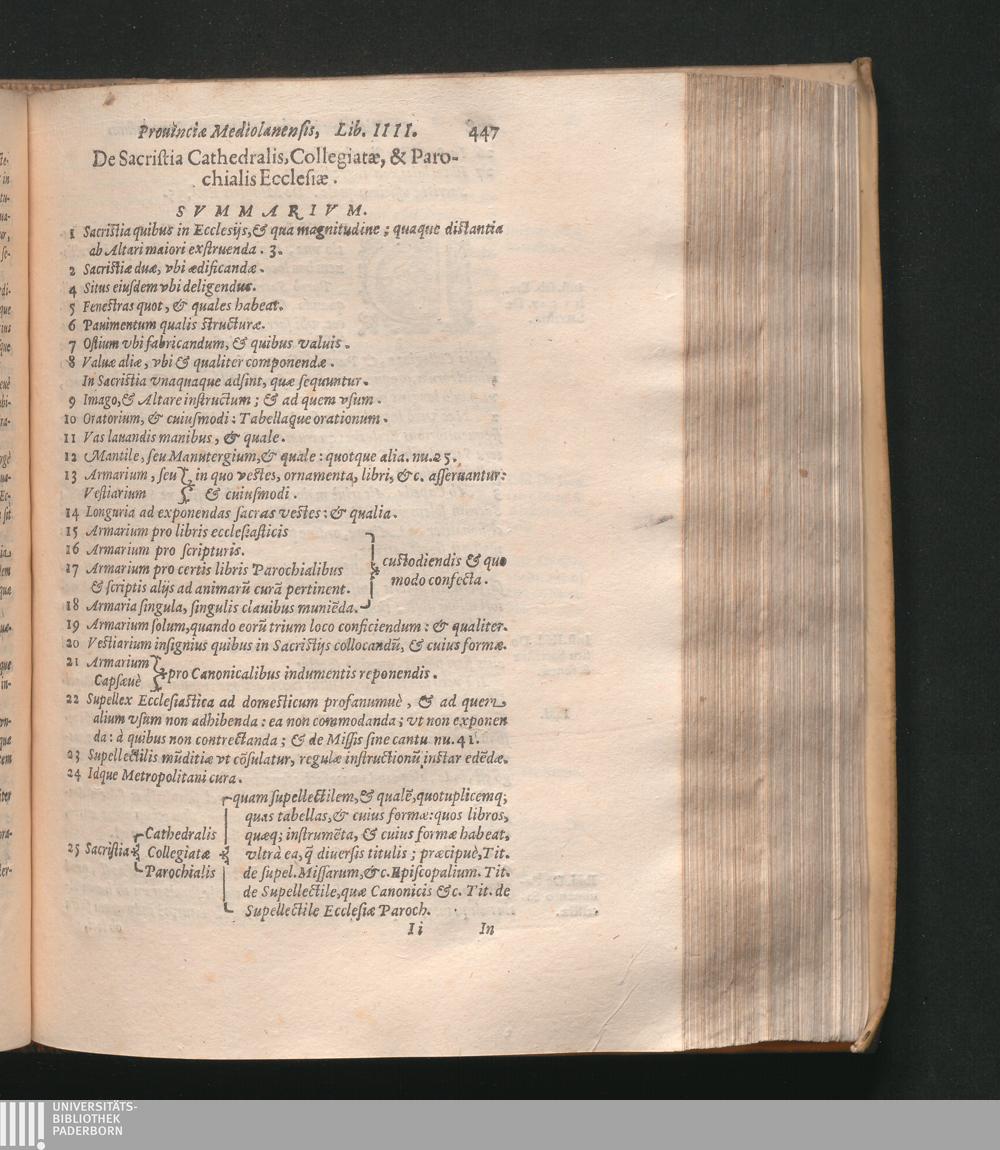 Prouinciæ Mediolanensis, Lib. IIII. 447
De Sacristia Cathedralis, Collegiatæ, & Paro-
chialis Ecclesiæ.
SVMMARIVM.
1 Sacristia quibus in Ecclesijs, & qua magnitudine; quaque distantia
ab Altari maiori exstruenda. 3.
2 Sacristiæ duæ, vbi ædificandæ.
4 Situs eiusdem vbi deligendus.
5 Fenestras quot, & quales habeat.
6 Pauimentum qualis structuræ.
7 Ostium vbi fabricandum, & quibus valuis.
8 Valuæ aliæ, vbi & qualiter componendæ.
In Sacristia vnaquaque adsint, quæ sequuntur.
9 Imago, & Altare instructum; & ad quem vsum.
10 Oratorium, & cuiusmodi: Tabellaque orationum.
11 Vas lauandis manibus, & quale.
12 Mantile, seu Manutergium, & quale: quotque alia. nu.25.
13 Armarium, seu } in quo vestes, ornamenta, libri, & c. asseruantur:
Vestiarium } & cuiusmodi.
14 Longuria ad exponendas sacras vestes: & qualia.
15 Armarium pro libris ecclesiasticis
16 Armarium pro scripturis.
17 Armarium pro certis libris Parochialibus
& scriptis alijs ad animarū curā pertinent.
18 Armaria singula, singulis clauibus muniēda.
custodiendis & quo
modo confecta.
19 Armarium solum, quando eorū trium loco conficiendum: & qualiter.
20 Vestiarium insignius quibus in Sacristijs collocandū, & cuius formæ.
21 Armarium
Capsæuè } pro Canonicalibus indumentis reponendis.
22 Supellex Ecclesiastica ad domesticum profanumuè, & ad quem
alium vsum non adhibenda: ea non commodanda; vt non exponen
da: à quibus non contrectanda; & de Missis sine cantu nu.41.
23 Supellectilis mūditiæ vt cōsulatur, regulæ instructionū instar edēdæ.
24 Idque Metropolitani cura.
25 Sacristia { Cathedralis
Collegiatæ
Parochialis
quam supellectilem, & qualē, quotuplicemq;
quas tabellas, & cuius formæ: quos libros,
quæq; instrumēta, & cuius formæ habeat,
vltrà ea, q̄ diuersis titulis; præcipuè, Tit.
de supel. Missarum, & c. Episcopalium. Tit.
de Supellectile, quæ Canonicis & c. Tit. de
Supellectile Ecclesiæ Paroch.
Ii In
UNIVERSITÄTS-
BIBLIOTHEK
PADERBORN